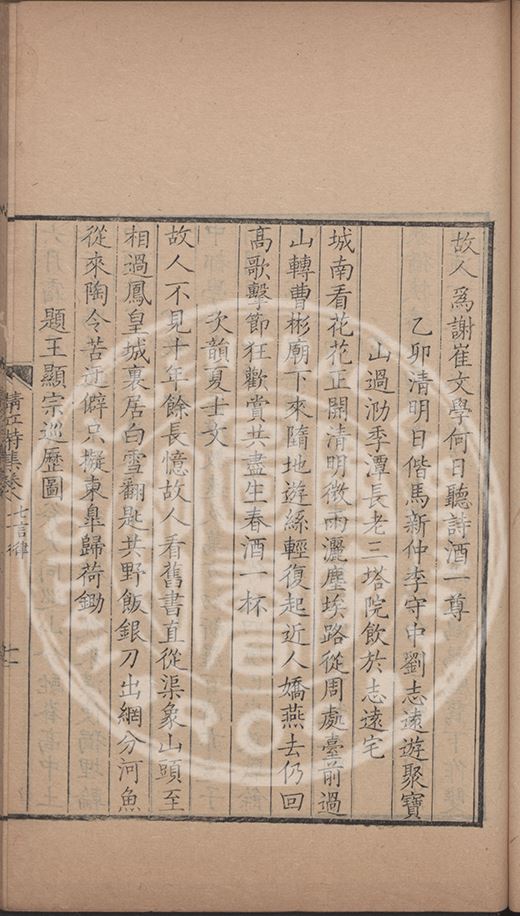 故人爲謝崔文學何日聽詩酒一尊
乙卯清明日偕馬新仲李守中劉志遠遊聚寶
山過泐季潭長老三塔院飲於志遠宅
城南看花花正開清明微雨灑塵埃路從周處臺前過
山轉曹彬廟下來隨地遊絲輕復起近人嬌燕去仍回
高歌擊節狂歡賞共盡生春酒一杯
次韻夏士文
故人不見十年餘長憶故人看舊書直從渠象山頭至
相過鳳皇城裏居白雪翻匙共野飯銀刀出網分河魚
從來陶令苦迂僻只擬東皐歸荷鋤
題王顯宗巡歷圖
清江詩集卷八 七言律